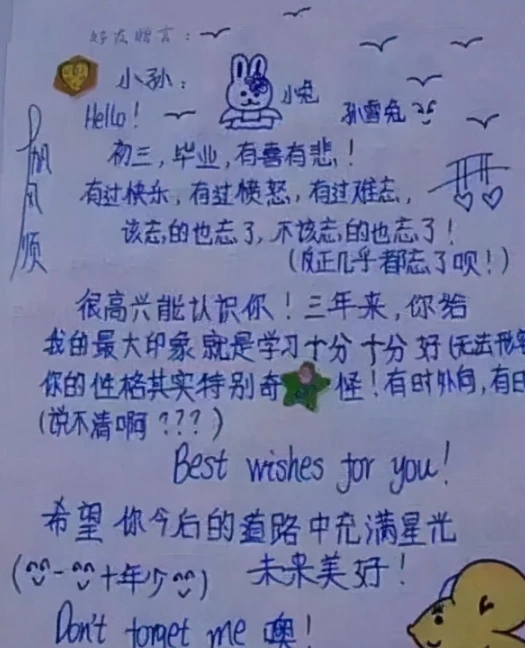 好友赠言:
小孙:
小兔
孙雪兔
Hello!
初三,毕业,有喜有悲!
帆风顺
有过快乐,有过愤怒,有过难忘,
该忘的也忘了,不该忘的也忘了!
(反正几乎都忘了呗!)
很高兴能认识你!三年来,你给
我的最大印象就是学习十分十分好(无法形
你的性格其实特别奇怪!有时外向,有
(说不清啊???)
Best wishes for you!
希望你今后的道路中充满星光
(十年少) 未来美好!
Don't forget me 噢!